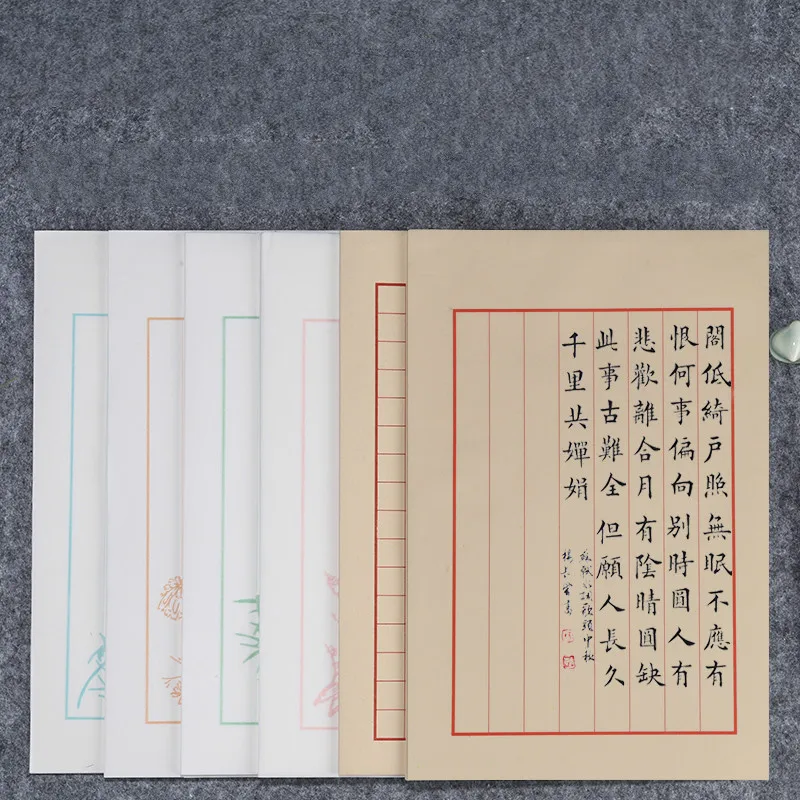 閣低綺戶照無眠不應有
恨何事偏向別時圓人有
悲歡離合月有陰晴圓缺
此事古難全但願人長久
千里共嬋娟
水調歌頭中秋